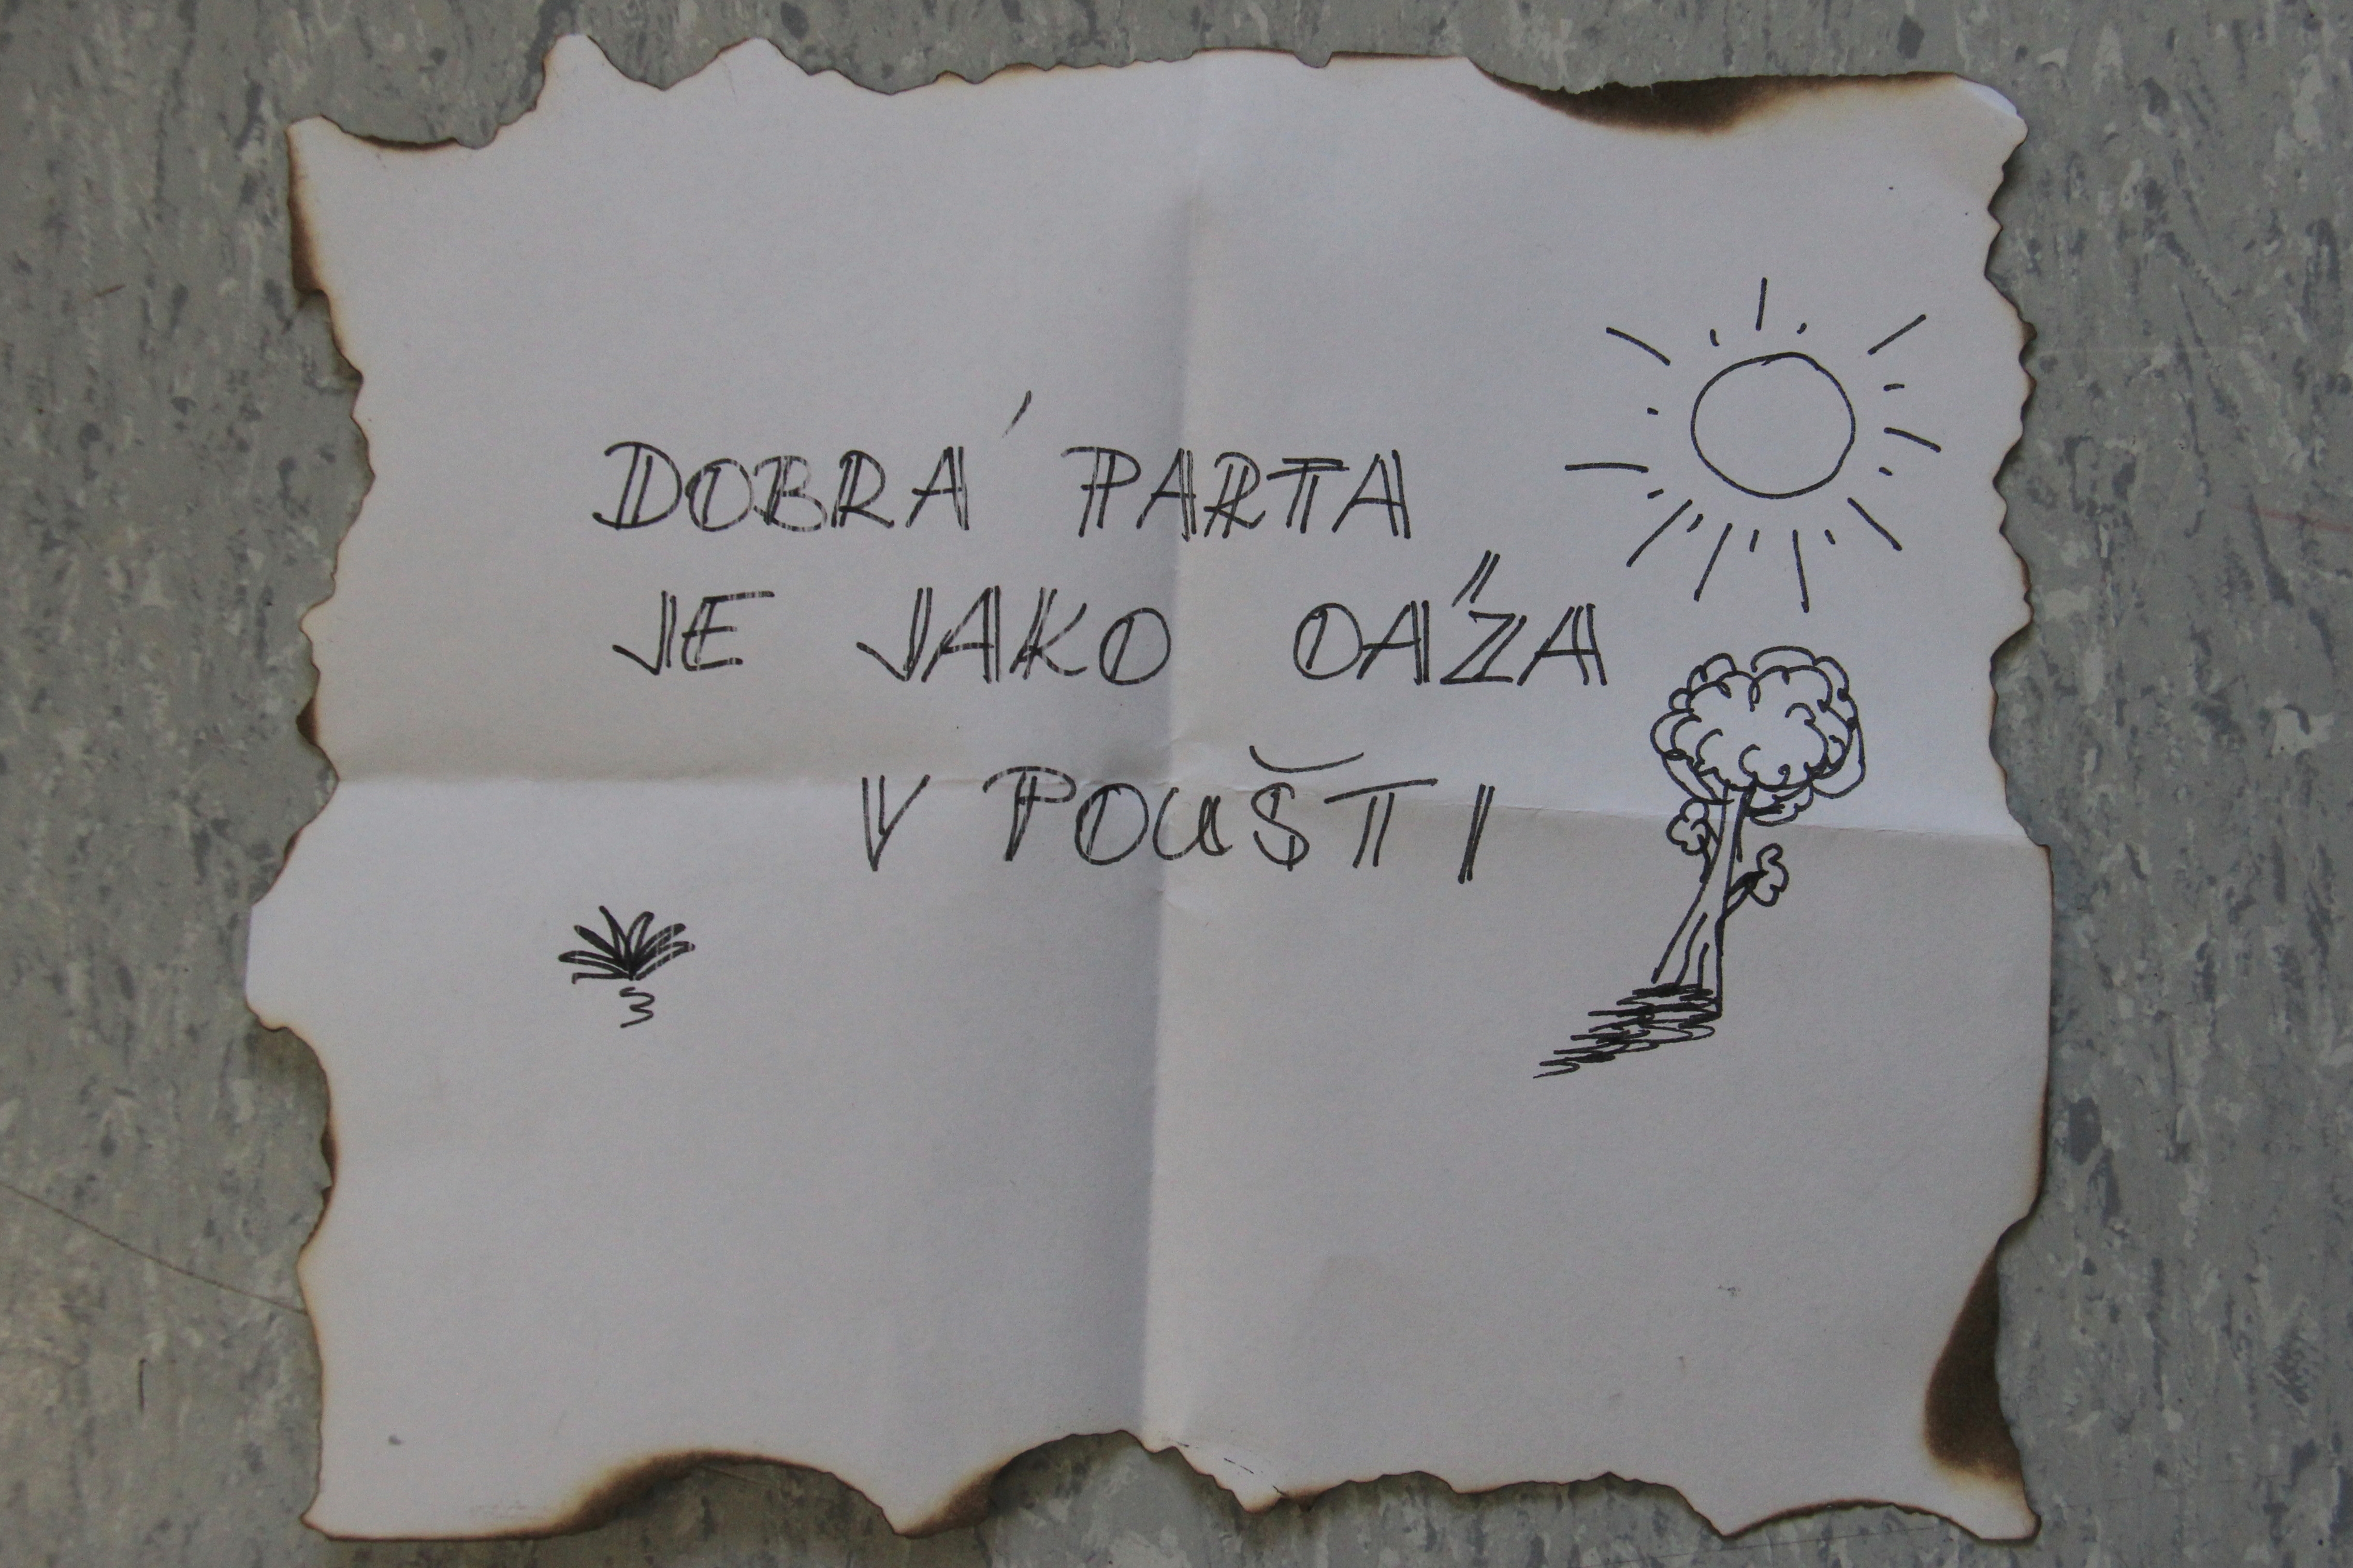 DOBRÁ PARTA
JE JAKO OÁZA
V POUŠTI